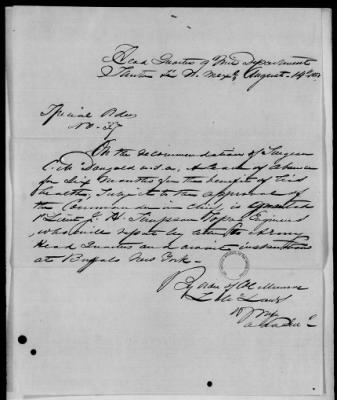 Head Quarters 9th Mil Department
Santa Fe N. Mex August 14th
Special Orders
No. 37
On the recommendation of Surgeon
C. McDougall U.S.A. A Leave of Absence
for Six months for the benefit of his
health, subject to the approval of
the Commander in Chief, is granted
1st Lieut J. H. Simpson Topo. Engineers
who will report by letter to Army
Head Quarters and await instructions
at Buffalo New York.
By order of Col Munroe